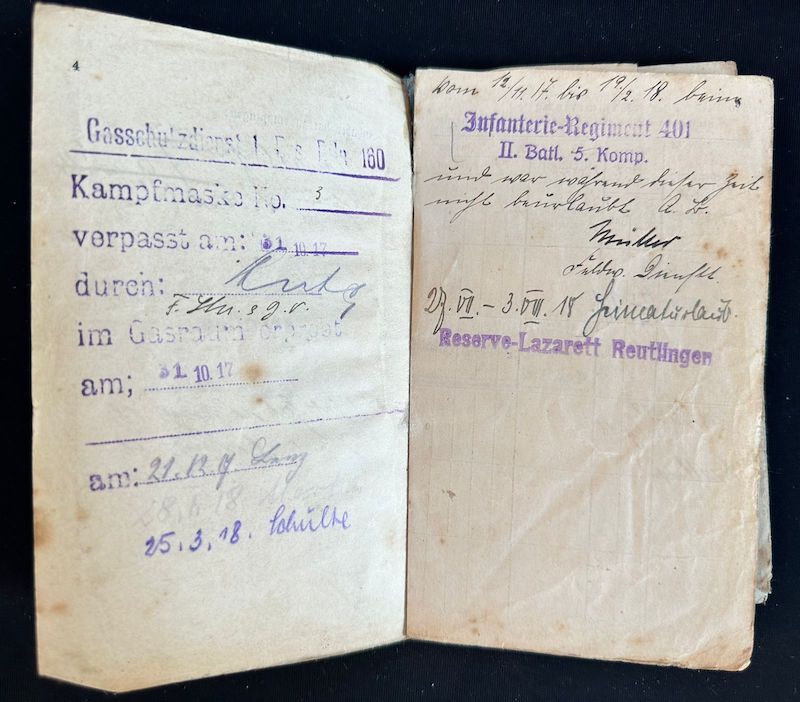 4
Gasschutzdienst 160
Kampfmaske No. 3
verpasst am: 31.10.17
durch:
im Gasraum erprobt
am; 31.10.17
am: 21.12.17
25.3.18. Schülte
vom 12/11.17. bis 19/2.18. beim
Infanterie-Regiment 401
II. Batl. 5. Komp.
und war während dieser Zeit
nicht beurlaubt
Müller
Feldw.
27.VII.–3.VIII.18 Heimaturlaub.
Reserve-Lazarett Reutlingen